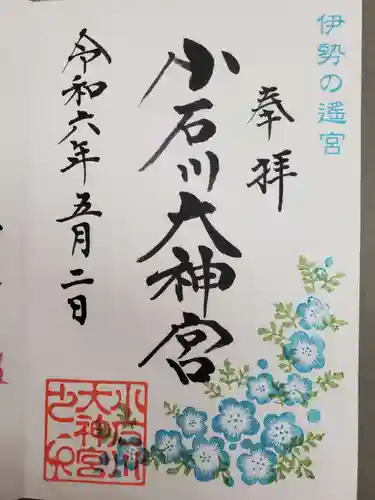 伊勢の遥宮
奉拝
小石川大神宮
令和六年五月二日
小石川
大神宮